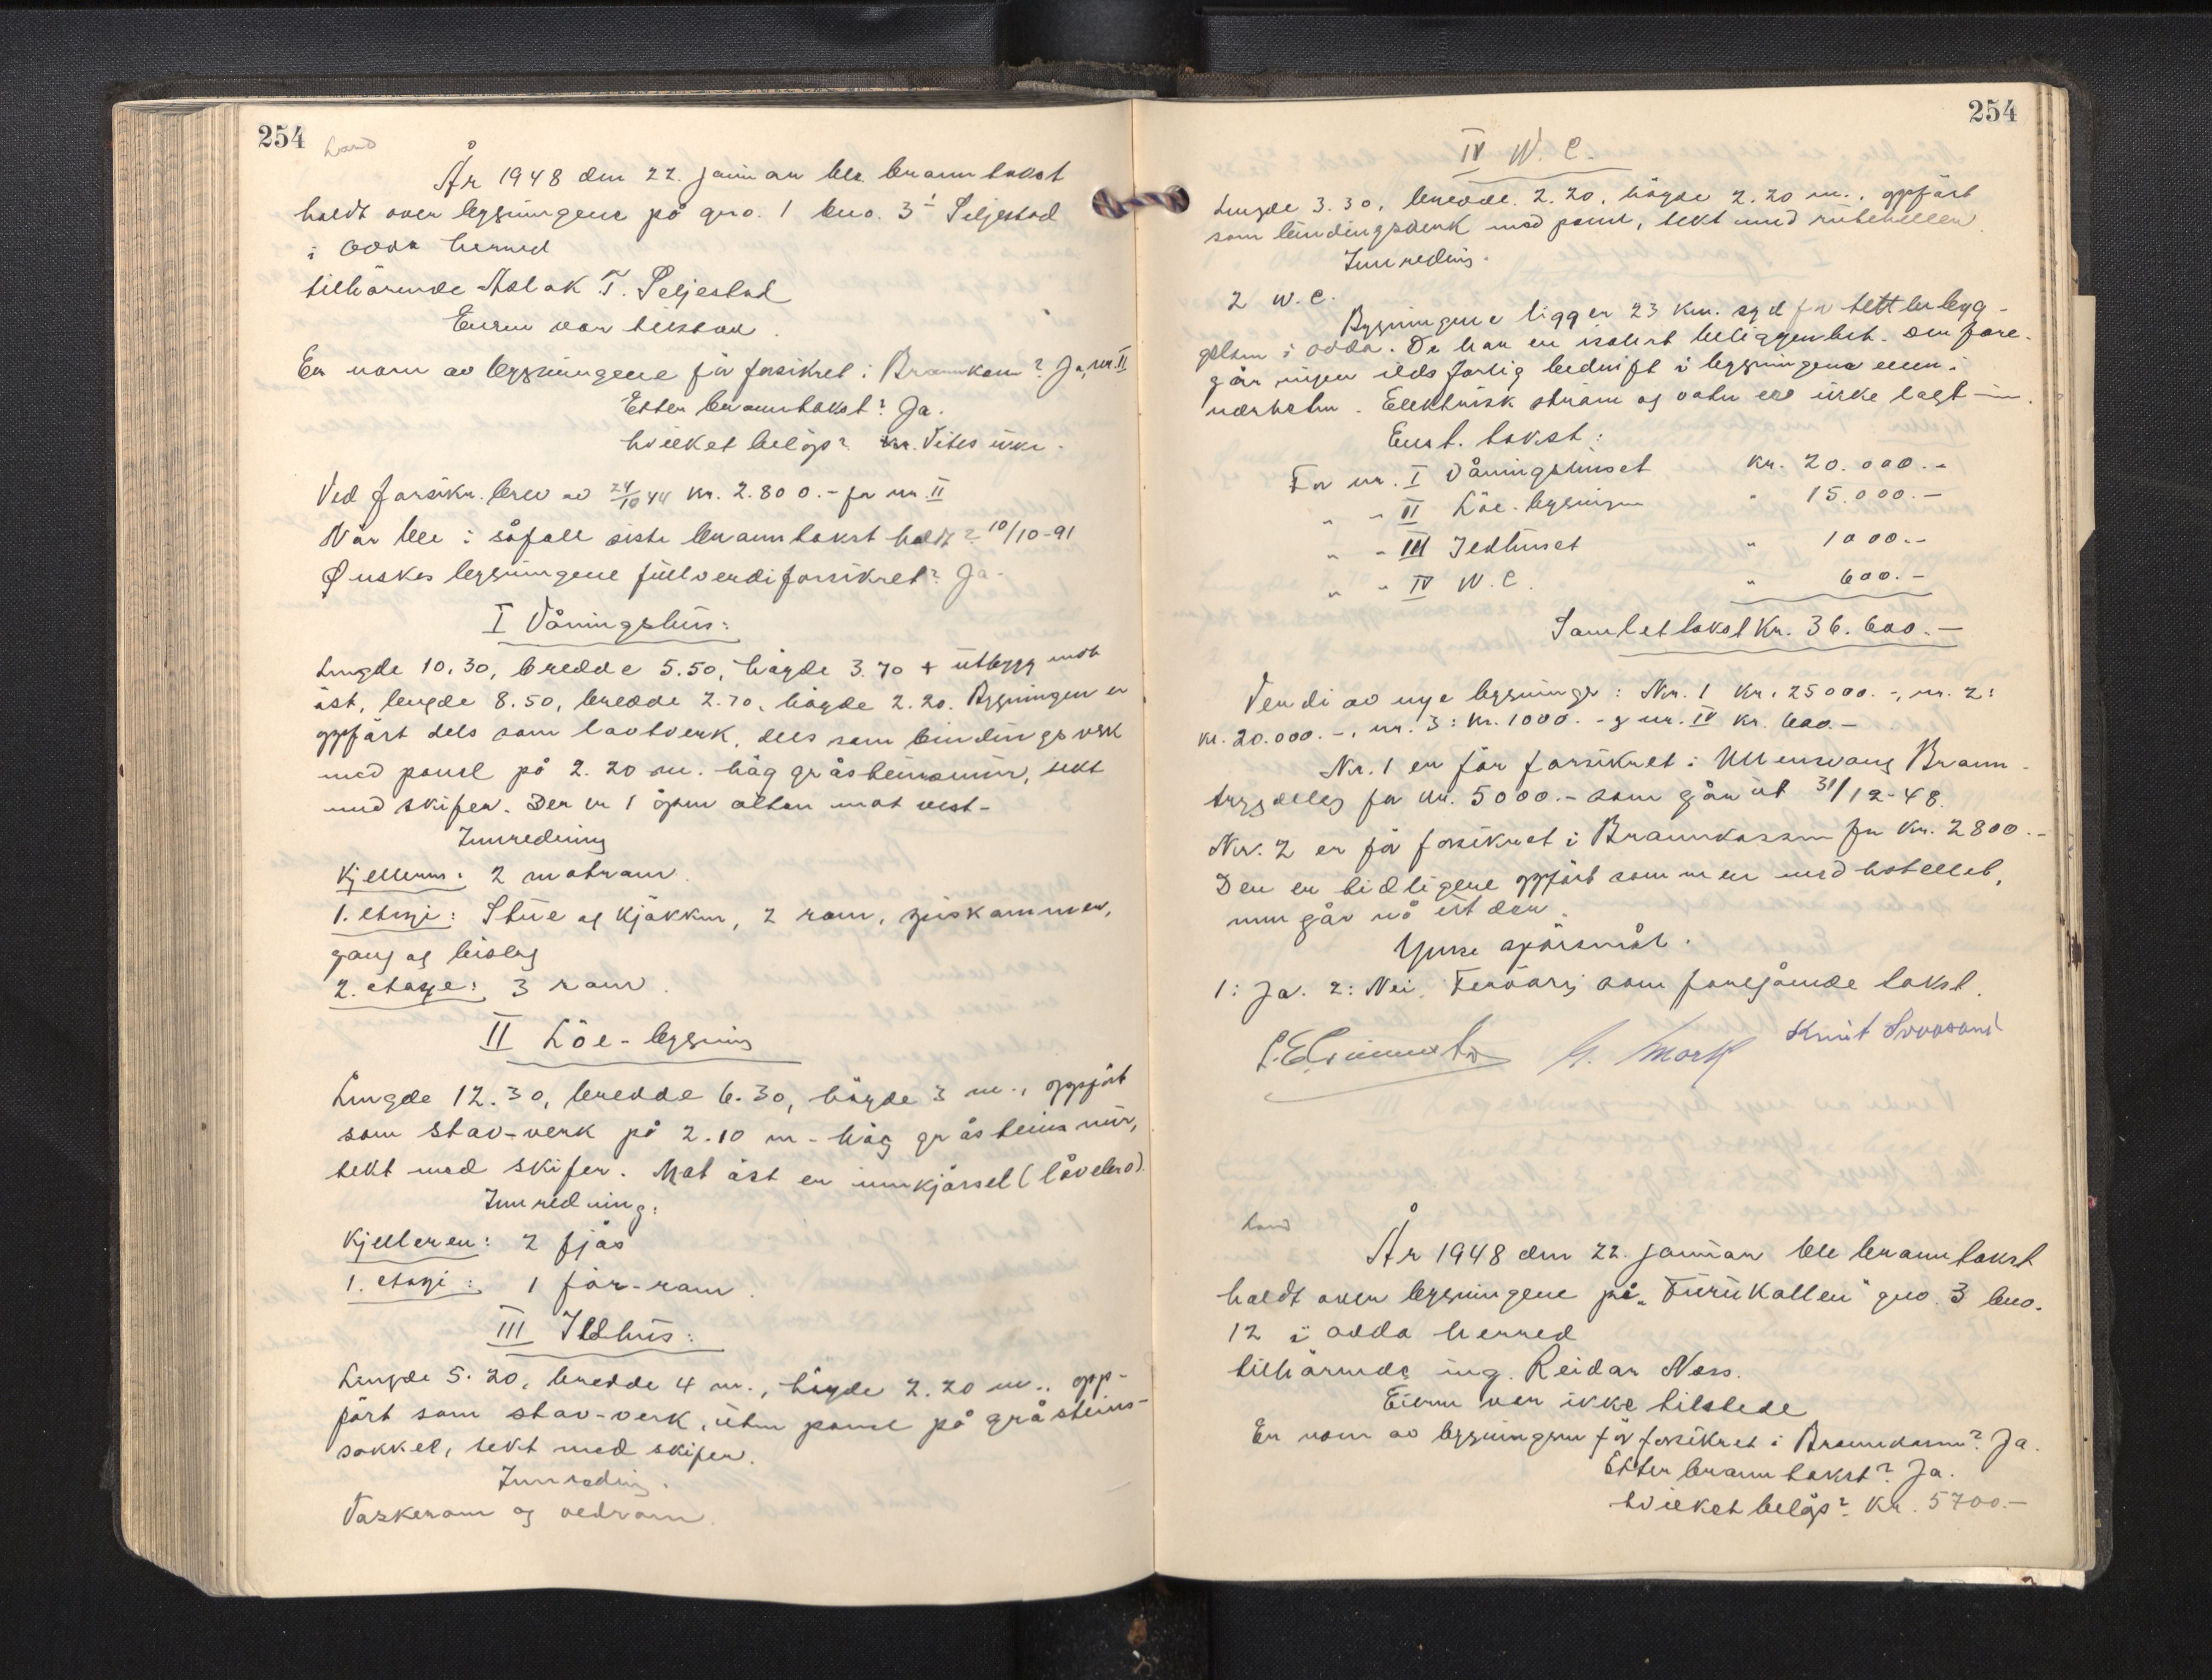 254
Land
År 1948 den 22. januar ble branntakst
holdt over bygningene på gno. 1 bno. 3¹ Seljestad
i Odda herred
tilhörende Aslak T. Seljestad
Eieren var tilstede.
Er noen av bygningene för forsikret i Brannkassen? Ja, nr. II
Etter branntakst? Ja.
hvilket belöp? kr. Vites ikke.
Ved forsikr. brev av 24/10 44 kr. 2.800.- for nr. II
Når ble i såfall siste branntakst holdt? 10/10-91
Ønskes bygningene fullverdiforsikret? Ja.
I Våningshus:
Lengde 10.30, bredde 5.50, höyde 3.70 + utbygg mot
öst, lengde 8.50, bredde 2.70, höyde 2.20. Bygningen er
oppfört dels som laftverk, dels som bindingsverk
med panel på 2.20 m. höy gråsteinsmur, tekt
med skifer. Der er 1 åpen altan mot vest-
Innredning
Kjelleren: 2 matrom.
1. etasje: Stue og kjökken, 2 rom, spiskammer,
gang og bislag
2. etasje: 3 rom.
II Löe-bygning
Lengde 12.30, bredde 6.30, höyde 3 m., oppfört
som stav-verk på 2.10 m. höy gråsteins mur,
tekt med skifer. Mot öst er innkjörsel (låvebro).
Innredning:
Kjelleren: 2 fjös
1. etasje: 1 fór-rom.
III Ildhus:
Lengde 5.20, bredde 4 m., höyde 2.20 m., opp-
fört som stav-verk, uten panel på gråsteins-
sokkel, tekt med skifer.
Innredning.
Vaskerom og vedrom.
254
IV W.C.
Lengde 3.30, bredde 2.20, höyde 2.20 m., oppfört
som bindingsverk med panel, tekt med ruteheller.
Innredning.
2 W.C.
Bygningene ligger 23 km. syd for tettbebygg-
elsen i Odda. De har en isolert beliggenhet. Der fore-
går ingen ildsfarlig bedrift i bygningene eller i
nærheten. Elektrisk ström og vatn er ikke lagt inn.
Enst. takst:
For nr. I Våningshuset kr. 20.000.-
" " II Löe-bygningen " 15.000.-
" " III Ildhuset " 1000.-
" " IV W.C. " 600.-
Samlet takst kr. 36.600.-
Verdi av nye bygninger: Nr. 1 kr. 25000.-, nr. 2:
kr. 20.000.-, nr. 3: kr. 1000.- og nr. IV kr. 600.-
Nr. 1 er för forsikret i Ullensvang Brann-
trygdelag for kr. 5000.- som går ut 31/12-48.
Nr. 2 er för forsikret i Brannkassen for kr. 2800.-
Den er tidligere oppfört sammen med hotellet,
men går nå ut der.
Ymse spörsmål.
1: Ja. 2: Nei. Forövrig som foregående takst.
Knut
Land
År 1948 den 22. januar ble branntakst
holdt over bygningene på "Furukollen" gno. 3 bno.
12 i Odda herred
tilhörende ing. Reidar Næss.
Eieren var ikke tilstede
Er noen av bygningene för forsikret i Brannkassen? Ja.
Etter branntakst? Ja.
hvilket belöp? kr. 5700.-